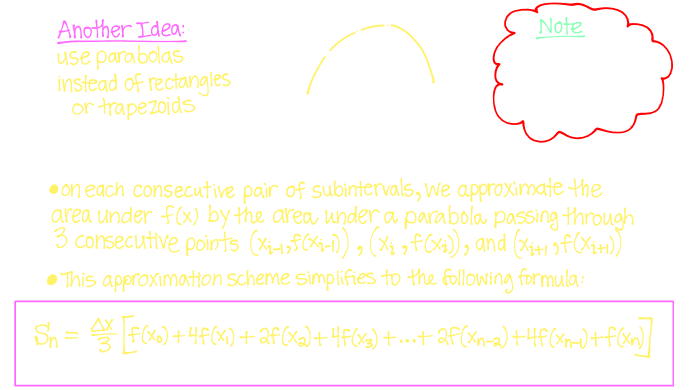 Another Idea:
use parabolas
instead of rectangles
or trapezoids
Note
•on each consecutive pair of subintervals, we approximate the
area under f(x) by the area under a parabola passing through
3 consecutive points (xᵢ₋₁, f(xᵢ₋₁)), (xᵢ, f(xᵢ)), and (xᵢ₊₁, f(xᵢ₊₁))
•This approximation scheme simplifies to the following formula:
Sₙ = Δx/3 [f(x₀) + 4f(x₁) + 2f(x₂) + 4f(x₃) + ... + 2f(xₙ₋₂) + 4f(xₙ₋₁) + f(xₙ)]